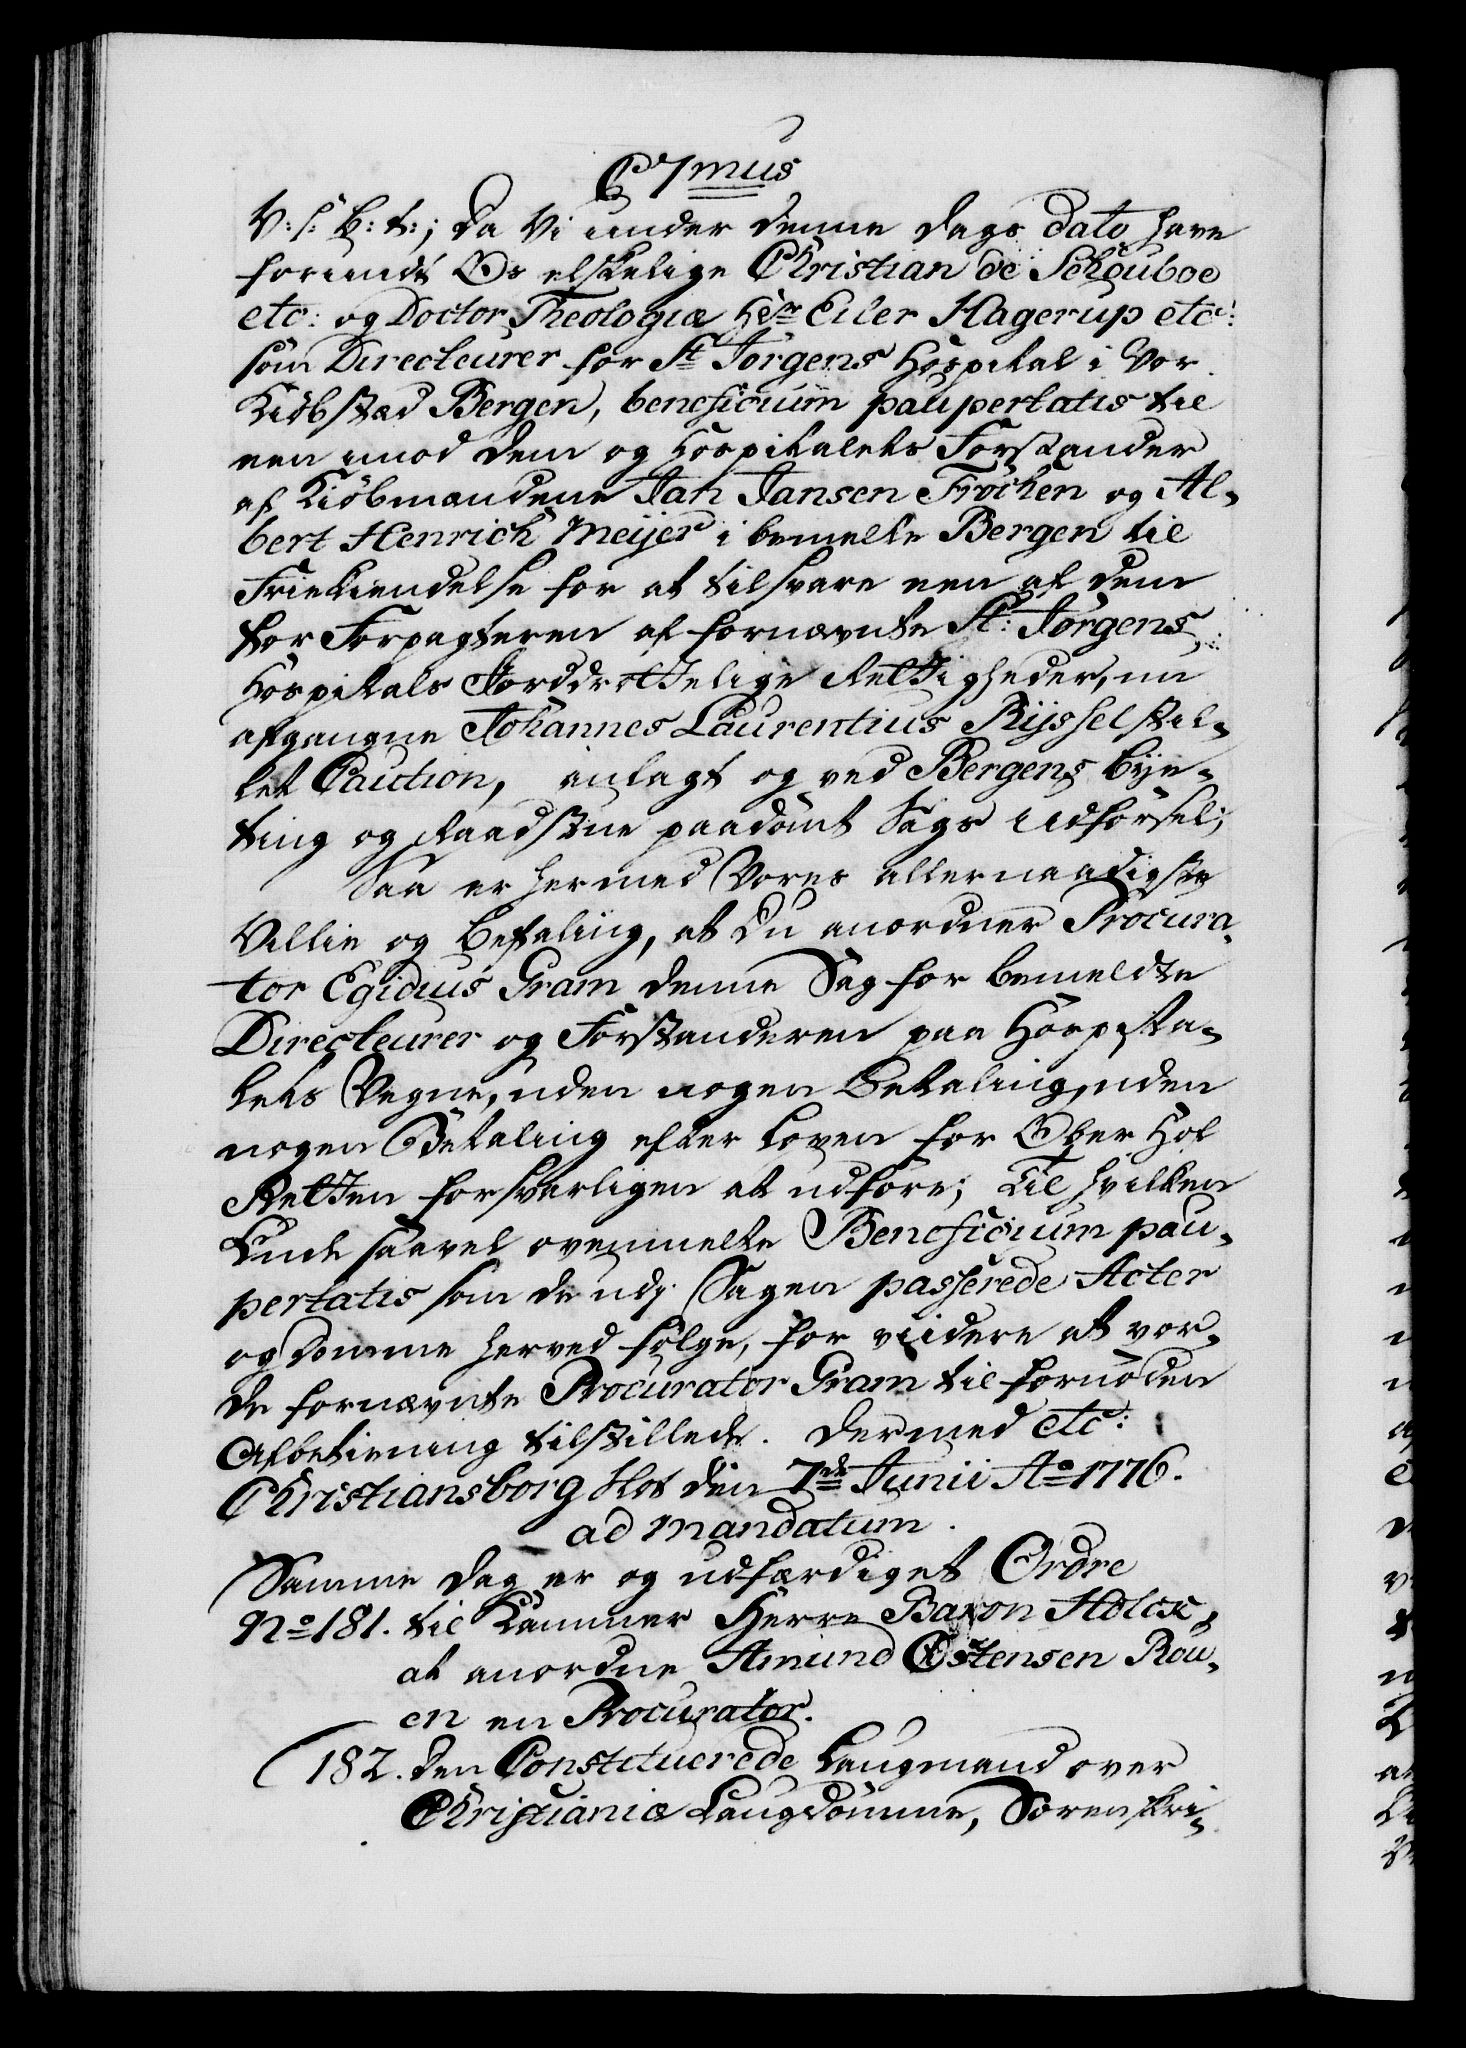 C 7mus
V: S: B: T:; Da Vi under denne Dags Dato have
forundt Os elskelige Christian de Schouboe
etc: og Doctor Theologiæ Hr Eiler Hagerup etc:
som Directeurer for St Jørgens Hospital i Vor
Kiøbstæd Bergen, beneficium paupertatis til
een imod dem og Hospitalets Forstander
af Kiøbmændene Jan Jansen Fröchen og Al-
bert Henrich Meijer i bemelte Bergen til
Friekiendelse for at tilsvare een af dem
for Forpagteren af fornævnte St: Jørgens
Hospitals Jorddrottelige Rettigheder, nu
afgangne Johannes Laurentius Rijssel stil-
let Caution, anlagt og ved Bergens Bye-
ting og Raadstue paadømt Sags Udførsel;
Saa er hermed Vores allernaadigste
Villie og Befaling, at du anordner Procura-
tor Egidius Gram denne Sag for bemeldte
Directeurer og Forstanderen paa Hospita-
lets Vegne, uden nogen Betaling, uden
nogen Betaling efter Loven for Ober Hof
Retten forsvarligen at udføre; Til hvilken
Ende saavel ovenmelte Beneficium pau-
pertatis som de udj Sagen passerede Acter
og Domme herved følge, for viidere at vor-
de fornævnte Procurator Gram til fornøden
Afbetiening tilstillede. Dermed etc:
Christiansborg Slot den 7de Junii Ao 1776.
ad mandatum.
Samme Dag er og udfærdiget Ordre
No 181. til Kammer Herre Baron Holck,
at anordne Amund Østensen Rou-
en en Procurator.
182. den Constituerede Laugmand over
Christianiæ Laugdømme, Sorenskri-